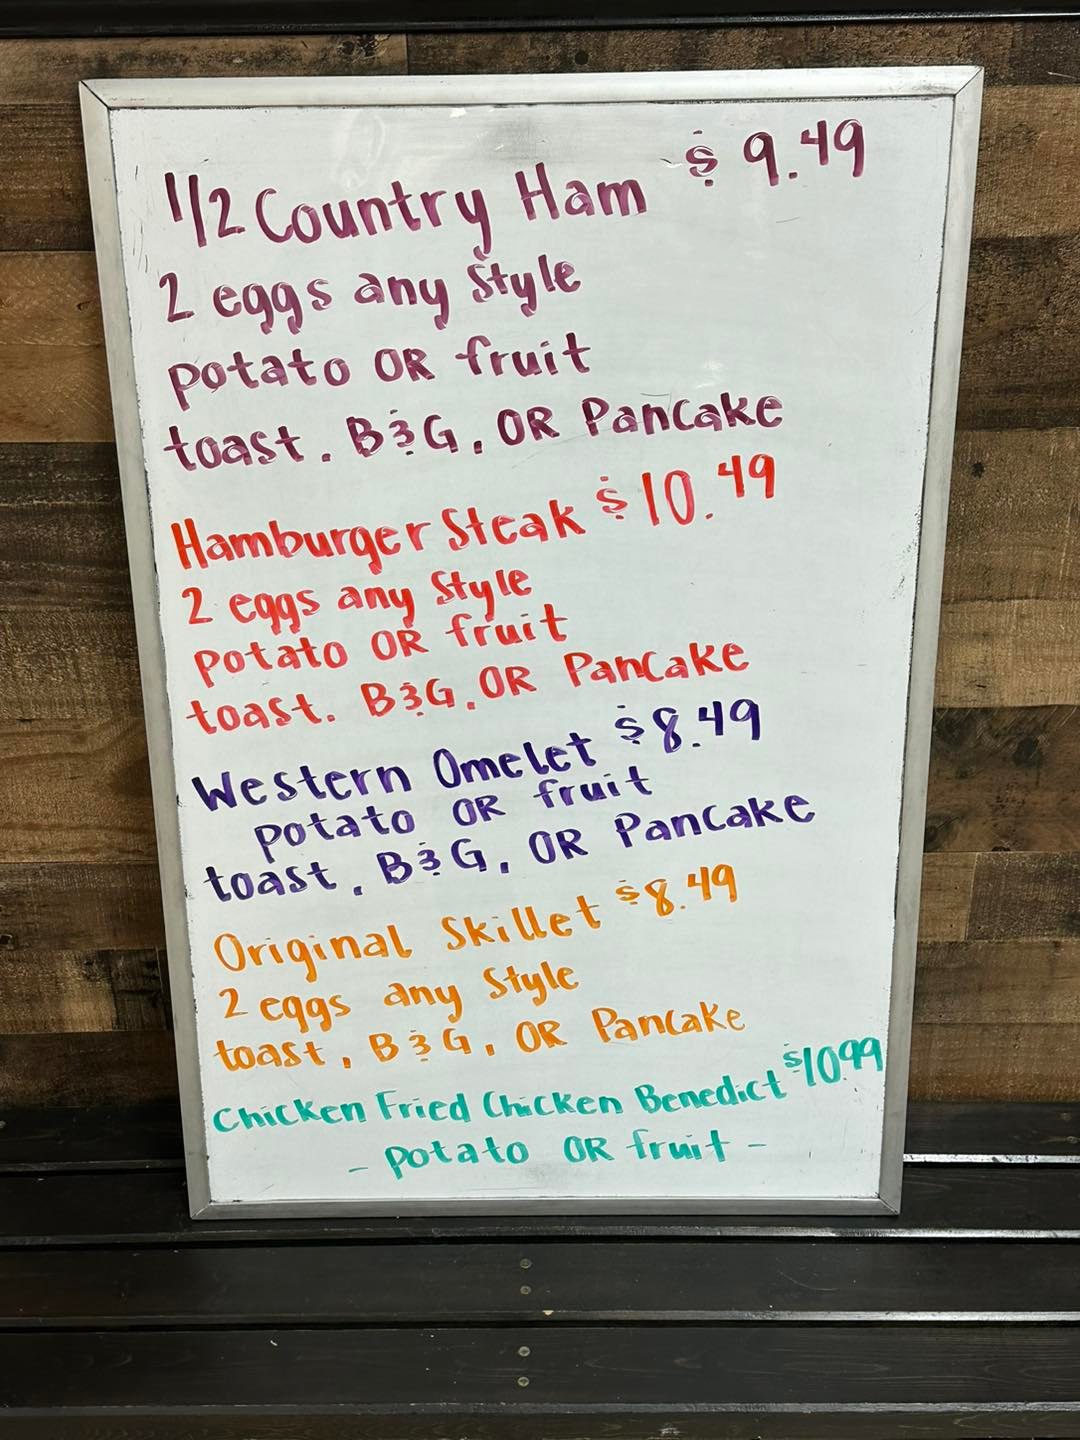 1/2 Country Ham $ 9.49
2 eggs any Style
potato OR fruit
toast, B&G, OR Pancake
Hamburger Steak $10.49
2 eggs any Style
potato OR fruit
toast. B&G, OR Pancake
Western Omelet $8.49
potato OR fruit
toast, B&G, OR Pancake
Original Skillet $8.49
2 eggs any Style
toast, B&G, OR Pancake
Chicken Fried Chicken Benedict $10.99
- potato OR fruit -